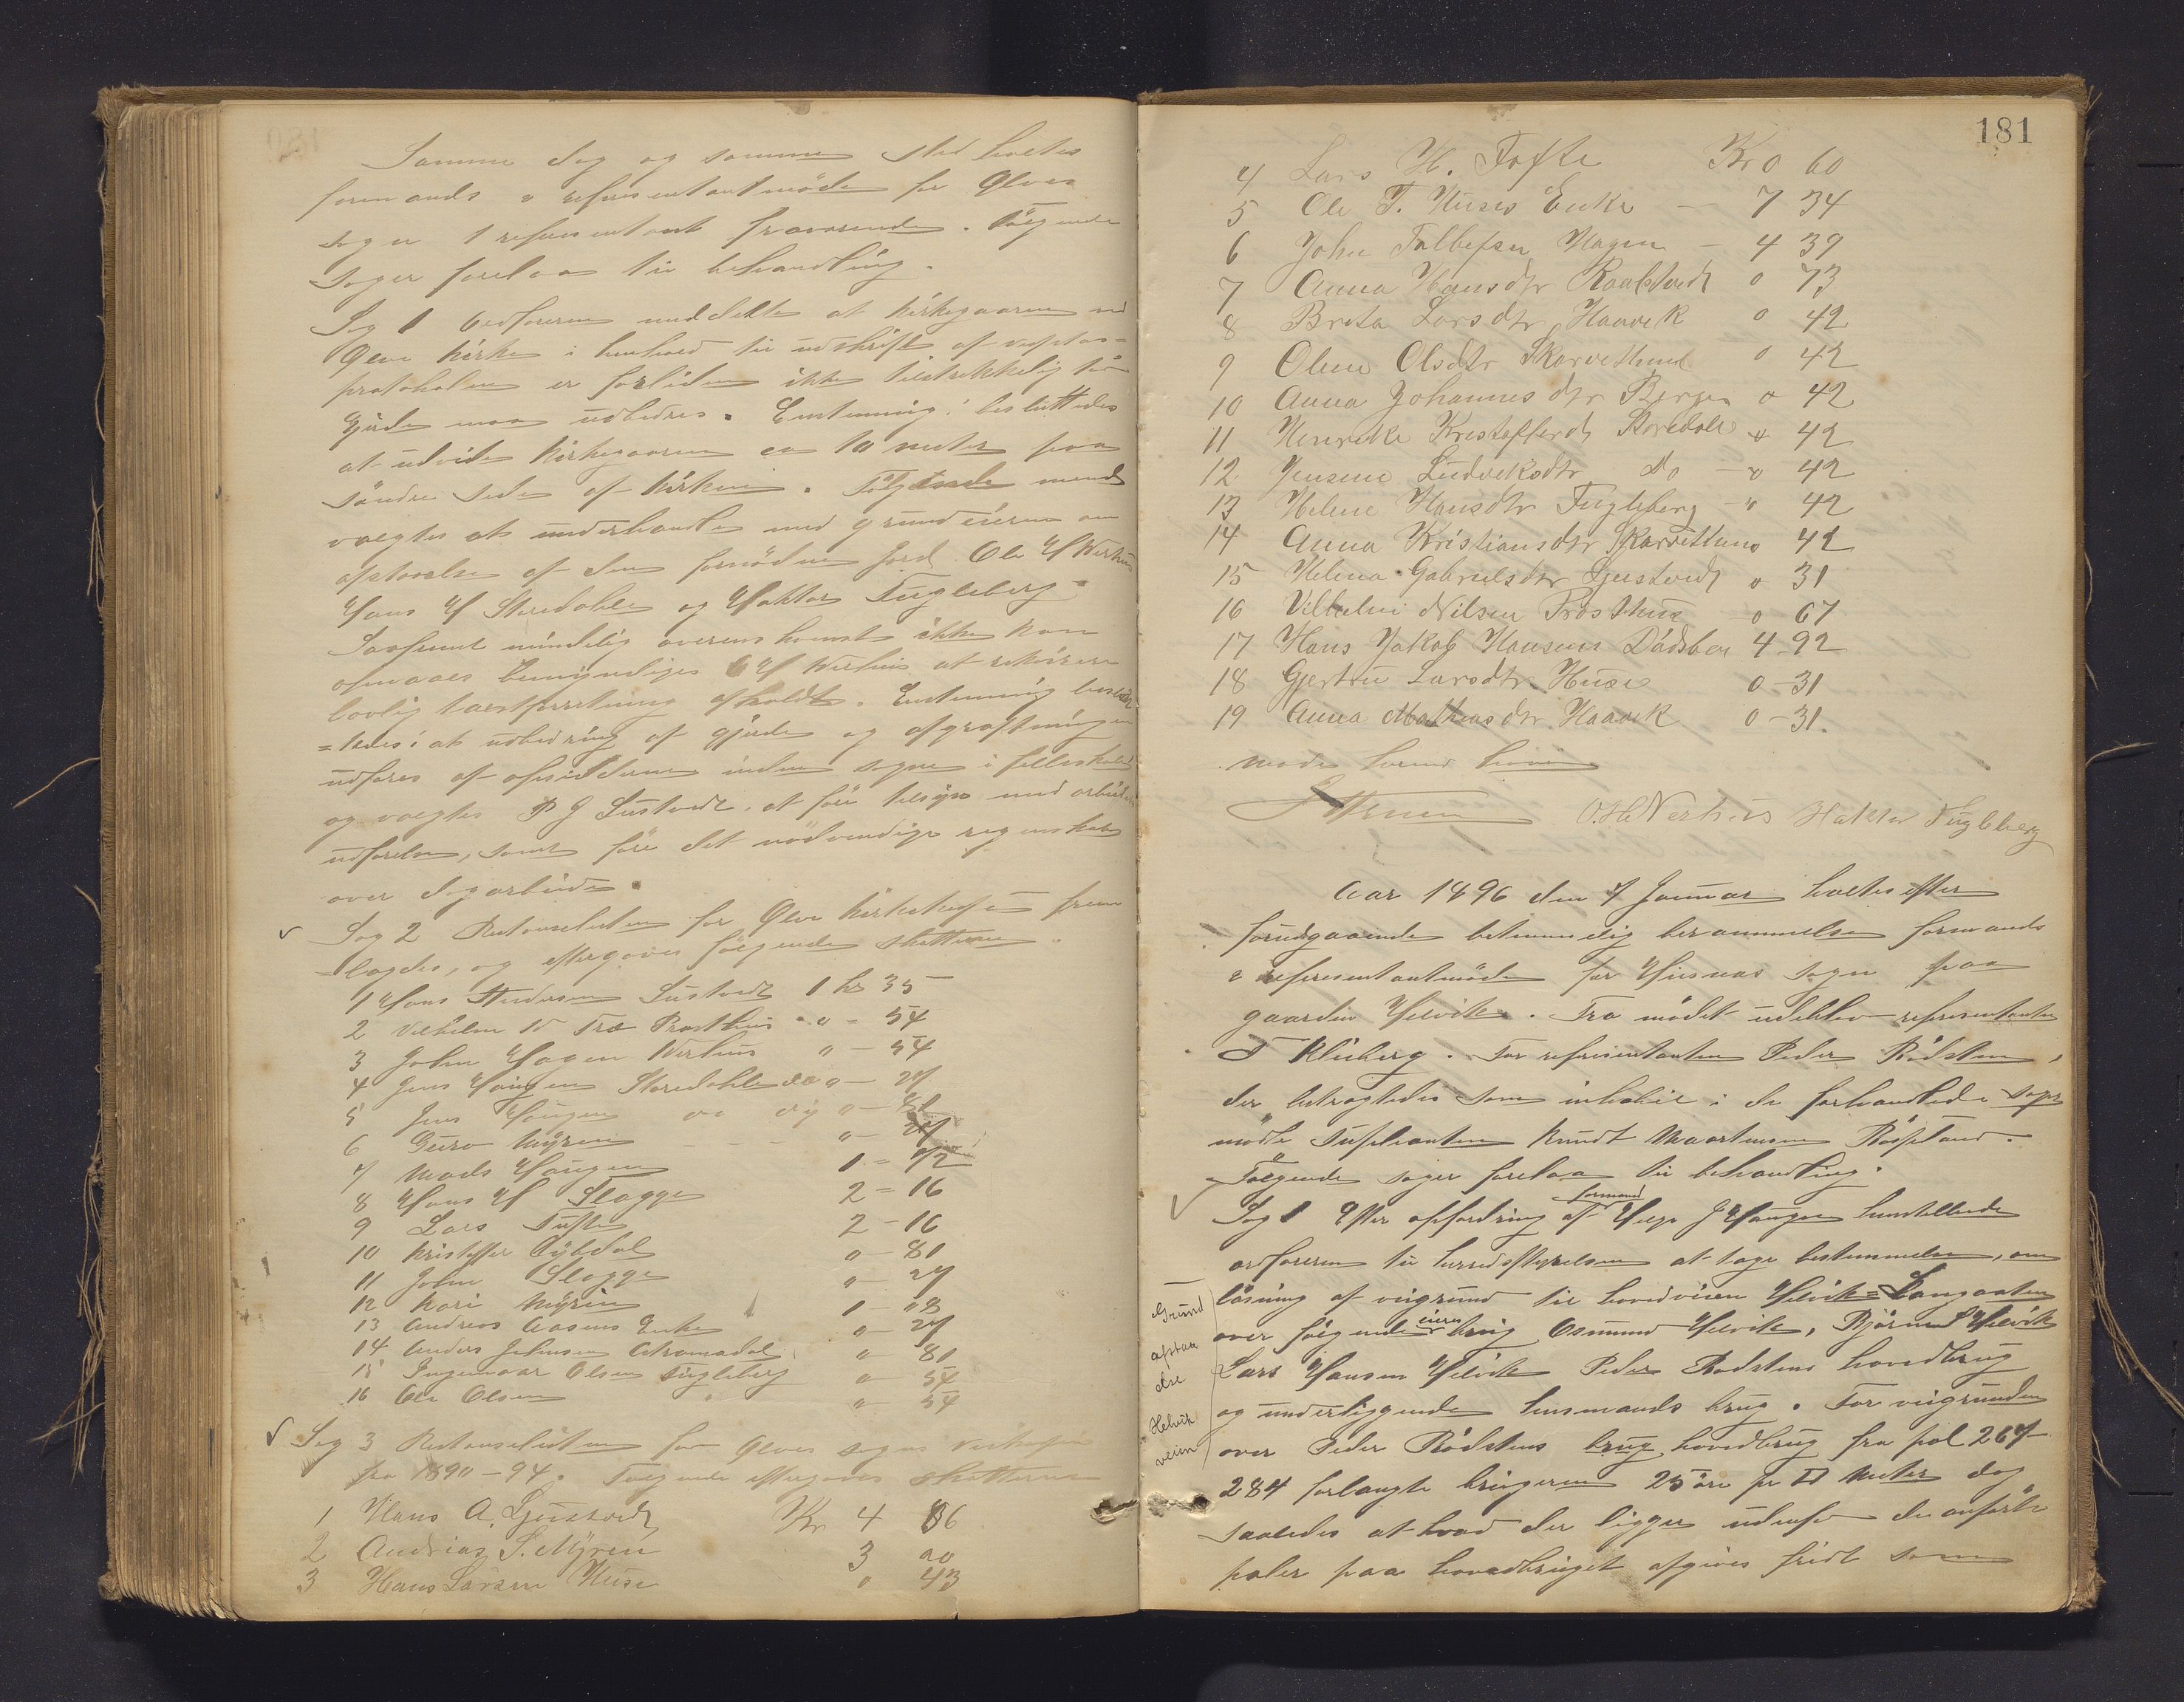 Samme dag og samme sted holtes
formands & representantmøde for Ølves
sogn 1 representant fraværende. Følgende
sager forelaa til behandling.
Sag 1 Ordføreren meddelte at kirkegaarden ved
Ølve kirke i henhold til udskrift af
protokolen er forliden ikke tilstrekkelig
gjærde maa udbedres. Enstemmig besluttedes
at udvide kirkegaarden ca 10 meter paa
søndre side af kirken. Følgende mænd
valgtes at underhandle med grundeierne om
afstaaelse af den fornødne jord Ole H Nerhus
Hans H Storedahle og Haktor Fugleberg.
Saafremt mindelig overenskomst ikke kan
opnaaes bemyndiges O H Nerhus at rekvirere
lovlig taxtforretning afholdt. Enstemmig beslut
=tedes: at udbedring af gjærde og afgrøftningen
udføres af opsidderne inden sognet i felleskab
og valgtes P J Sustvedt at føre tilsyn med arbeidets
udførelse, samt føre det nødvendige regnskab
over dagarbeide.
Sag 2 Restanselisten for Ølve kirkeskat frem
=lagdes, og eftergaves følgende skatterne.
1 Hans Andersen Sustvedt 1 kr 35
2 Vilhelm N Træ Prosthus " - 54
3 John Hagen Nerhus " - 54
4 Jens Haugen Storedahle " - 27
5 Jens Haugen " - 81
6 Guro Myren - - - " - 27
7 Mads Haugen 1 = 72
8 Hans H Flagge 2 = 16
9 Lars Tufte 2 - 16
10 Kristoffer Dybdal " - 80
11 John Flogge " - 27
12 Kari Myren 1 - 08
13 Andreas Aasens Enke " - 27
14 Anders Johnsen " - 80
15 Ingemaar Olsen Fugleberg " - 54
16 Ole Olsen " " - 54
Sag 3 Restanselisten for Ølves sogns
fra 1890 - 94. Følgende eftergaves skatterne
1 Hans A. Gjustvedt Kr 4 86
2 Andrias S. Myren 3 90
3 Hans Larsen Huse 0 43
181
4 Lars H. Tofte Kr 0 60
5 Ole T. Huses Enke - 7 34
6 John Tollefsen Hagen - 4 39
7 Anna Hansdtr Raabstvedt 0 73
8 Brita Larsdtr Haavik 0 42
9 Oline Olsdtr Skarvethun 0 42
10 Anna Johannesdtr Berge 0 42
11 Henrikke Kristofferdt Storedale 0 42
12 Jensine Ludviksdtr Do - 0 42
13 Helene Hansdtr Fugleberg - " 42
14 Anna Kristiansdtr Skarvethun 42
15 Helena Gabrielsdtr Gjustvedt 0 31
16 Vilhelm Nilsen Prosthus 0 67
17 Hans Jakob Hansens Dødsbo 4 - 92
18 Gjertru Larsdtr. Huse 0 - 31
19 Anna Mathiasdtr Haavik 0 - 31.
O. H. Nerhus Haktor Fugleberg
Aar 1896 den 7 Januar holtes efter
forudgaaende betimmelig berammelse formands
& representantmøde for Husnes sogn paa
gaarden Helvik. Fra mødet udeblev representanten
T Kleberg. For representanten Peder Rødsten,
der betragtedes som inhabil i de forhandlede sager
mødte Supleanten Knudt Maartensen Røssland.
Følgende sager forelaa til behandling.
Sag 1 Efter opfordring af formand Helge J Haugen henstillede
ordføreren til herredsstyrelsen at tage bestemmelse, om
løsning af veigrund til hovedveien Helvik = Langaaten
over følgende eieres brug Osmund Helvik, Bjørne S Helvik
Lars Hansen Helvik Peder Rødstens hovedbrug
og underliggende husmands brug. For veigrunden
over Peder Rødstens brug hovedbrug fra pæl 267-
284 forlangte brugeren 25 øre pr □ meter dog
saaledes at hvad der ligger udenfor de anførte
pæler paa hovedbruget afgives fridt som
Grund
afstaa
else
Helvik
veien